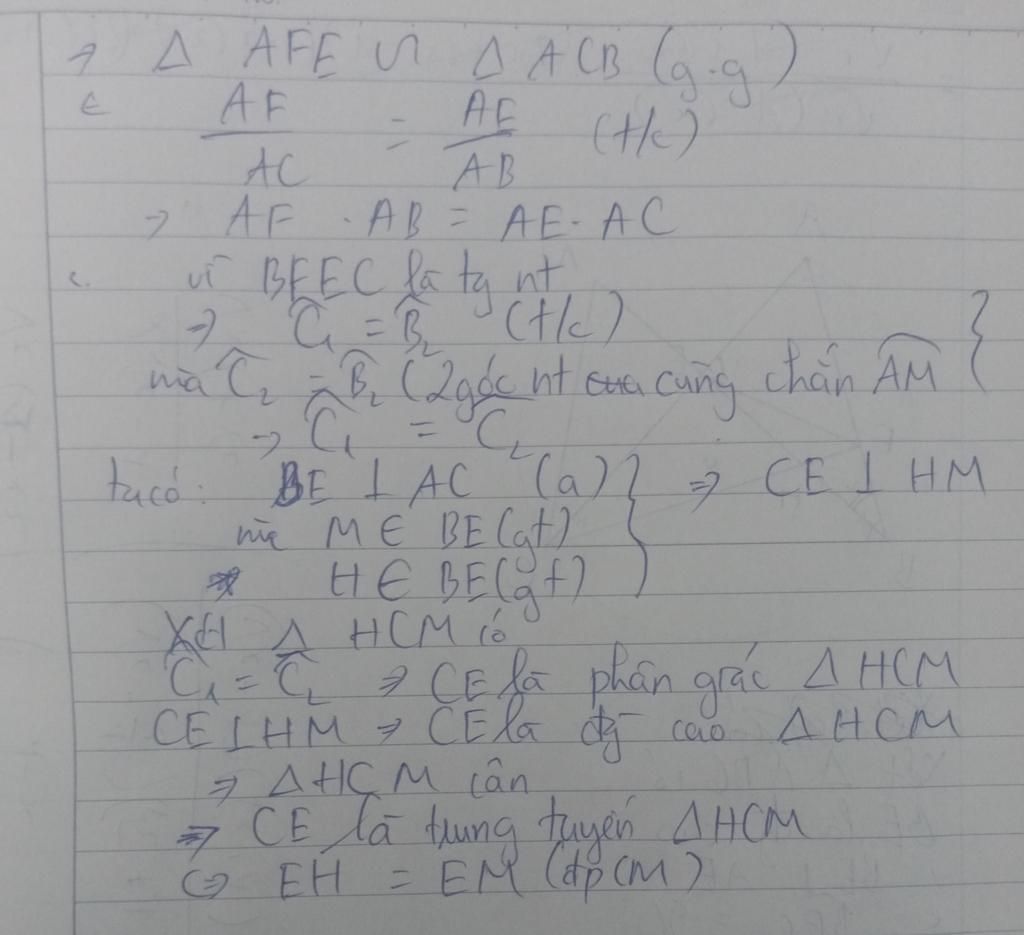 ⇒ Δ AFE ∽ Δ ACB (g.g)
€ AF/AC = AE/AB (t/c)
→ AF . AB = AE . AC
c. vì BFEC là tg nt
⇒ Ĉ₁ = B̂₂ (t/c)
mà Ĉ₂ = B̂₂ (2góc nt cùng chắn AM }
→ Ĉ₁ = Ĉ₂
ta có: BE ⊥ AC (a) } ⇒ CE ⊥ HM
mà M ∈ BE (gt)
H ∈ BE (gt)
Xét Δ HCM có
Ĉ₁ = Ĉ₂ ⇒ CE là phân giác Δ HCM
CE ⊥ HM ⇒ CE là đg cao Δ HCM
⇒ Δ HCM cân
⇒ CE là trung tuyến Δ HCM
⇔ EH = EM (đpCM)